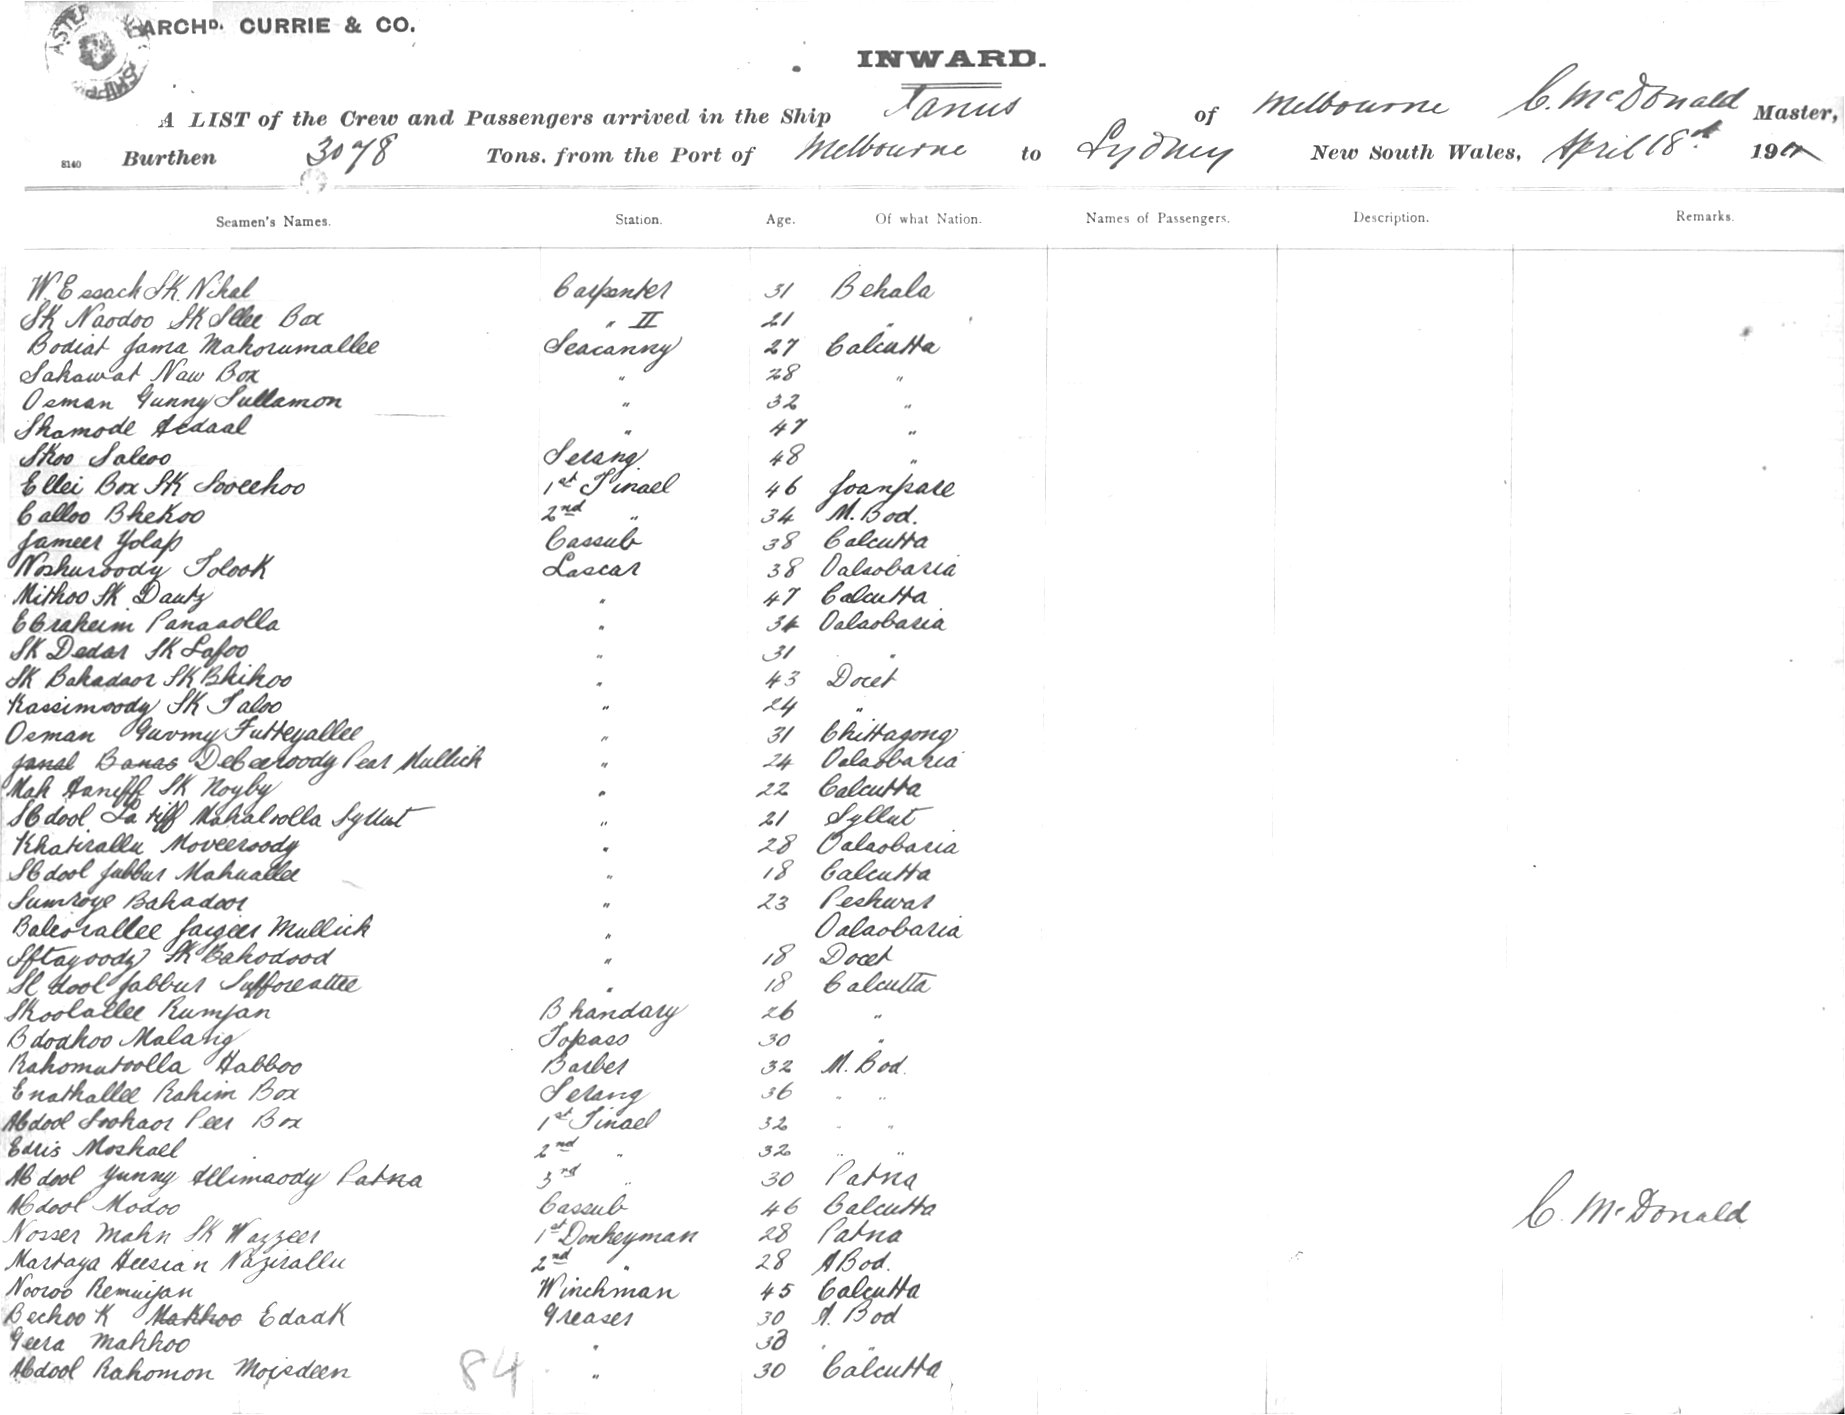 ARCHD. CURRIE & CO.
INWARD.
A LIST of the Crew and Passengers arrived in the Ship Janus of Melbourne C. McDonald Master,
8140 Burthen 3078 Tons. from the Port of Melbourne to Sydney New South Wales, April 18th 190
Seamen's Names. Station. Age. Of what Nation. Names of Passengers. Description. Remarks.
W Essach SK. Nehal Carpenter 31 Behala
SK Naodoo SK Box " II 21 "
Bodiat Jama Mahorumallee Seacanny 27 Calcutta
Sakawat Naw Box " 28 "
Osman Gunny Sullamon " 32 "
Shamode Aedaal " 47 "
Skoo Saleoo Serang 48 "
Ellei Box SK Sooeehoo 1st Tinael 46 Joanpare
Calloo Bhekoo 2nd " 34 M. Bod.
Jameer Golap Cassub 38 Calcutta
Noshuroody Tolook Lascar 38 Oalaobaria
Mithoo SK Dautz " 47 Calcutta
Ebraheim Panaaolla " 34 Oalaobaria
SK Dedar SK Lafoo " 31 "
SK Bahadaor SK Bhikoo " 43 Docet
Kassimoody SK Taloo " 24 "
Osman Guvmy Futteyallee " 31 Chittagong
Janal Banas Debeeroody Pear Mullick " 24 Oalaobaria
Mah Haneff SK Noyby " 22 Calcutta
Abdool Latiff Mahalolla Syllut " 21 Syllut
Khatirallu Moveeroody " 28 Oalaobaria
Abdool Jubbur Mahuallee " 18 Calcutta
Sumroye Bahadoor " 23 Peshwar
Baleorallee Jaigeer Mullick " Oalaobaria
Aftayoody SK Bahodood " 18 Docet
Abdool Jabbur Sufforeattee " 18 Calcutta
Skoolallee Rumjan Bhandary 26 "
Bdodhoo Malang Topass 30 "
Rahomutoolla Habboo Barber 32 M. Bod.
Enathallee Rahim Box Serang 36 " "
Abdool Soohaor Peer Box 1st Tinael 32 " "
Edris Moshall 2nd " 32 " "
Abdool Gunny Allimaody Patna 3rd " 30 Patna
Abdool Modoo Cassub 46 Calcutta
C. McDonald
Nosser Mahn SK Wazzeer 1st Donkeyman 28 Patna
Martaya Heesian Nazirallu 2nd " 28 A Bod.
Nooroo Remuijan Winchman 45 Calcutta
Bechoo K Makhoo Edaak Greaser 30 A. Bod
Geera Makhoo " 30 " "
Abdool Rahomon Moisdeen " 30 Calcutta
84